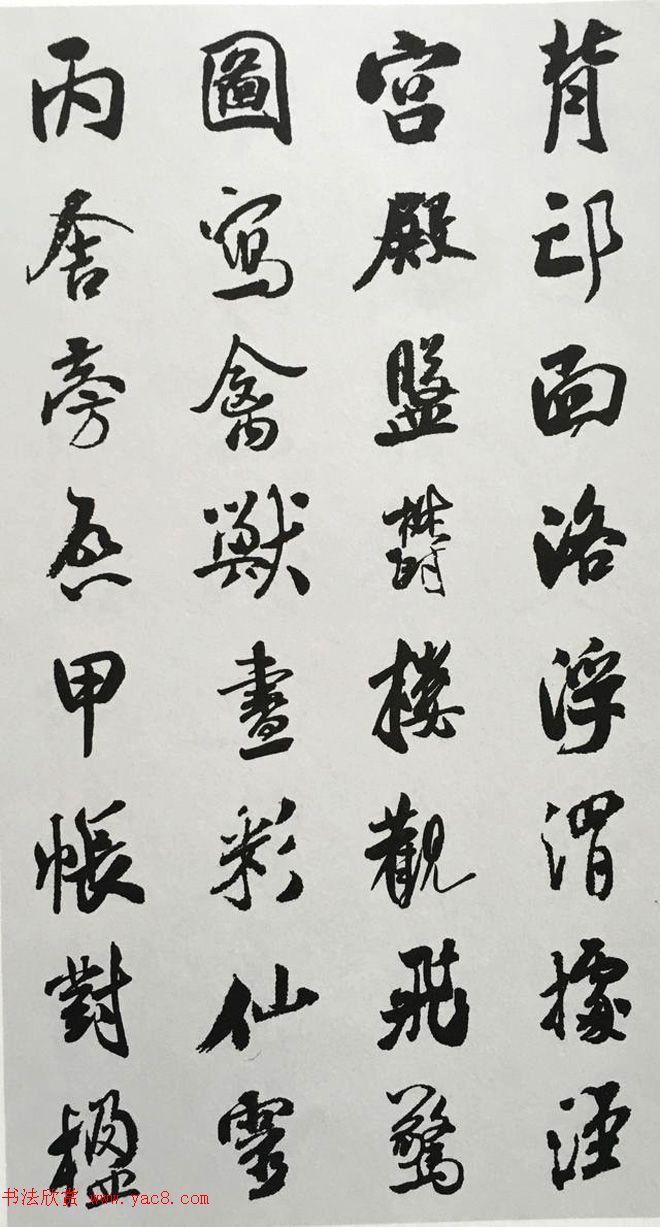 背邙面洛浮渭據涇
宮殿盤鬱樓觀飛驚
圖寫禽獸畫彩仙靈
丙舍旁啟甲帳對楹
书法欣赏 www.yac8.com